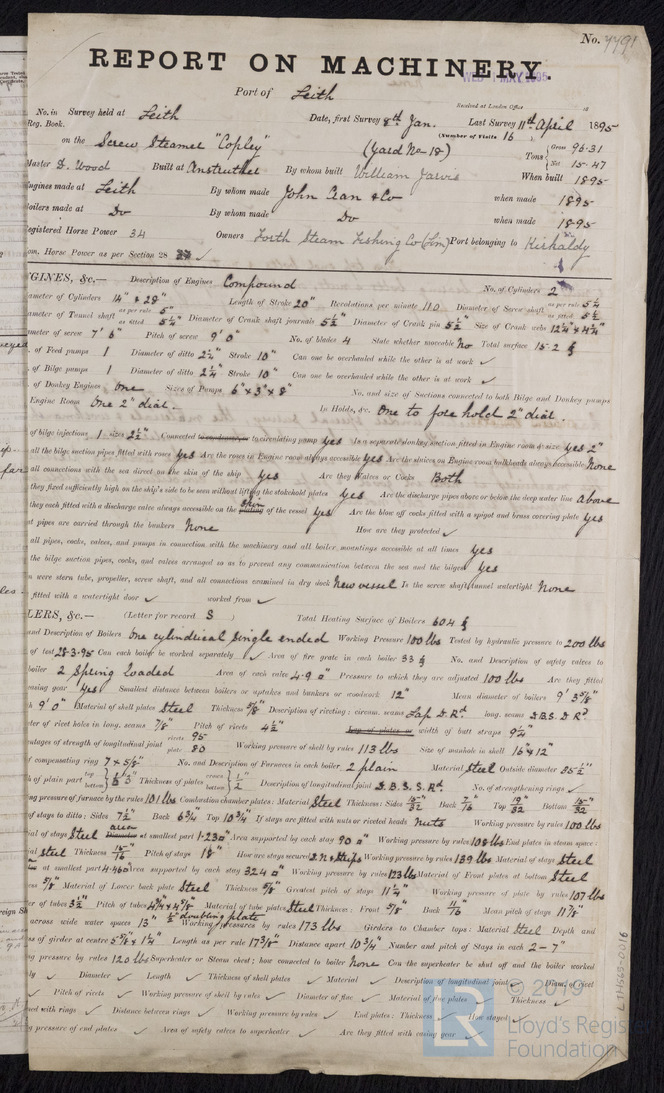 No. 7791
REPORT ON MACHINERY.
WED 1 MAY 1895
Port of Leith
Received at London Office 18
No. in Survey held at Leith Date, first Survey 8th Jan. Last Survey 11th April 1895
Reg. Book. (Number of Visits 16 )
on the Screw Steamer "Copley" (Yard No 18) Tons Gross 96.31 Net 15.47
Master D. Wood Built at Anstruther By whom built William Jarvis When built 1895
Engines made at Leith By whom made John Cran & Co when made 1895
Boilers made at Do By whom made Do when made 1895
Registered Horse Power 34 Owners Forth Steam Fishing Co (Lim) Port belonging to Kirkcaldy
Nom. Horse Power as per Section 28 ✓
GINES, &c.— Description of Engines Compound No. of Cylinders 2
ameter of Cylinders 14" & 28" Length of Stroke 20" Revolutions per minute 110 Diameter of Screw shaft as per rule 5¼ as fitted 5½
ameter of Tunnel shaft as per rule 5" as fitted 5¼" Diameter of Crank shaft journals 5½" Diameter of Crank pin 5½" Size of Crank webs 12¼" x 4¼"
meter of screw 7' 6" Pitch of screw 9' 0" No. of blades 4 State whether moveable No Total surface 15.2
. of Feed pumps 1 Diameter of ditto 2¼" Stroke 10" Can one be overhauled while the other is at work ✓
. of Bilge pumps 1 Diameter of ditto 2¼" Stroke 10" Can one be overhauled while the other is at work ✓
. of Donkey Engines One Sizes of Pumps 6" x 3" x 8" No. and size of Suctions connected to both Bilge and Donkey pumps
Engine Room One 2" diar. In Holds, &c. One to fore hold 2" diar.
of bilge injections 1 sizes 2½" Connected to condenser, or to circulating pump yes Is a separate donkey suction fitted in Engine room & size yes 2"
all the bilge suction pipes fitted with roses yes Are the roses in Engine room always accessible yes Are the sluices on Engine room bulkheads always accessible None
all connections with the sea direct on the skin of the ship yes Are they Valves or Cocks Both
they fixed sufficiently high on the ship's side to be seen without lifting the stokehold plates yes Are the discharge pipes above or below the deep water line above
they each fitted with a discharge valve always accessible on the plating skin of the vessel yes Are the blow off cocks fitted with a spigot and brass covering plate yes
at pipes are carried through the bunkers None How are they protected ✓
all pipes, cocks, valves, and pumps in connection with the machinery and all boiler mountings accessible at all times yes
the bilge suction pipes, cocks, and valves arranged so as to prevent any communication between the sea and the bilges yes
n were stern tube, propeller, screw shaft, and all connections examined in dry dock New vessel Is the screw shaft tunnel watertight None
fitted with a watertight door ✓ worked from ✓
LERS, &c.— (Letter for record S ) Total Heating Surface of Boilers 604
and Description of Boilers One cylindrical Single ended Working Pressure 100 lbs Tested by hydraulic pressure to 200 lbs
of test 28.3.95 Can each boiler be worked separately ✓ Area of fire grate in each boiler 33 No. and Description of safety valves to
boiler 2 Spring loaded Area of each valve 4.9 □" Pressure to which they are adjusted 100 lbs Are they fitted
easing gear yes Smallest distance between boilers or uptakes and bunkers or woodwork 12" Mean diameter of boilers 9' 3⅝"
h 9' 0" Material of shell plates Steel Thickness ⅝" Description of riveting: circum. seams Lap D.Rd. long. seams D.B.S. D.Rd.
ter of rivet holes in long. seams ⅞" Pitch of rivets 4½" Lap of plates or width of butt straps 9¼"
entages of strength of longitudinal joint rivets 95 plate 80 Working pressure of shell by rules 113 lbs Size of manhole in shell 16" x 12"
of compensating ring 7 x ⅝" No. and Description of Furnaces in each boiler 2 plain Material Steel Outside diameter 35½"
h of plain part top bottom Thickness of plates crown bottom ½ Description of longitudinal joint D.B.S.S.Rd. No. of strengthening rings ✓
ing pressure of furnace by the rules 101 lbs Combustion chamber plates: Material Steel Thickness: Sides 15/32 Back 7/16 Top 19/32 Bottom 15/32
of stays to ditto: Sides 7½" Back 6¾ Top 10¾" If stays are fitted with nuts or riveted heads Nuts Working pressure by rules 100 lbs
ial of stays Steel Diameter area at smallest part 1.23□" Area supported by each stay 90 □" Working pressure by rules 108 lbs End plates in steam space:
ial Steel Thickness 15/16 Pitch of stays 18" How are stays secured 2 N & Strips Working pressure by rules 139 lbs Material of stays Steel
at smallest part 4.460 Area supported by each stay 324 □" Working pressure by rules 123 lbs Material of Front plates at bottom Steel
ess ⅝" Material of Lower back plate Steel Thickness ⅝" Greatest pitch of stays 11¼" Working pressure of plate by rules 107 lbs
er of tubes 3½" Pitch of tubes 4¾ x 4⅝" Material of tube plates Steel Thickness: Front ⅝" Back 11/16 Mean pitch of stays 11⅞"
across wide water spaces 13" ½" doubling plate Working pressures by rules 173 lbs Girders to Chamber tops: Material Steel Depth and
ss of girder at centre 5⅝" x 1¼" Length as per rule 17⅜" Distance apart 10¾" Number and pitch of Stays in each 2 - 7"
ng pressure by rules 120 lbs Superheater or Steam chest; how connected to boiler None Can the superheater be shut off and the boiler worked
ly ✓ Diameter ✓ Length ✓ Thickness of shell plates ✓ Material ✓ Description of longitudinal joint ✓ Diam. of rivet
✓ Pitch of rivets ✓ Working pressure of shell by rules ✓ Diameter of flue ✓ Material of flue plates Thickness ✓
ned with rings ✓ Distance between rings ✓ Working pressure by rules ✓ End plates: Thickness ✓ How stayed ✓
g pressure of end plates ✓ Area of safety valves to superheater ✓ Are they fitted with easing gear ✓
LR
© 2019
Lloyd's Register
Foundation